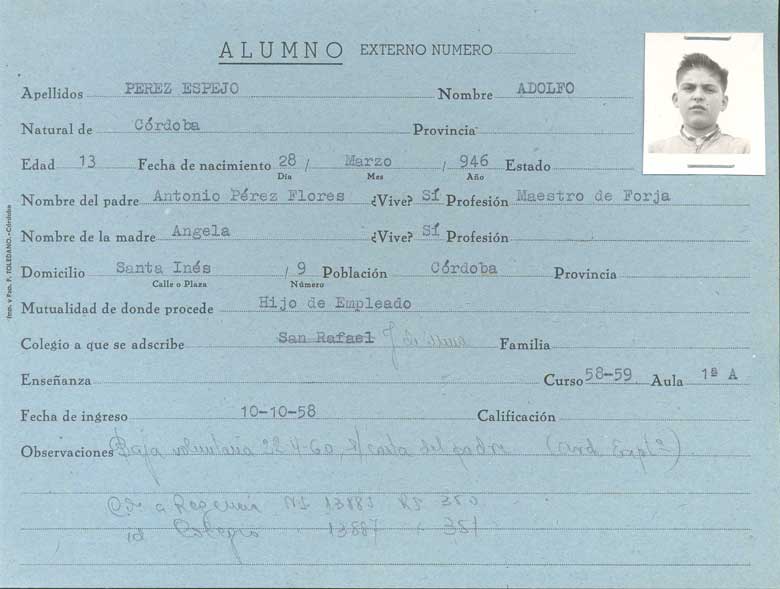 ALUMNO EXTERNO NUMERO
Apellidos PEREZ ESPEJO Nombre ADOLFO
Natural de Córdoba Provincia
Edad 13 Fecha de nacimiento 28 / Marzo / 946 Estado
Día Mes Año
Nombre del padre Antonio Pérez Flores ¿Vive? SÍ Profesión Maestro de Forja
Nombre de la madre Angela ¿Vive? SÍ Profesión
Domicilio Santa Inés / 9 Población Córdoba Provincia
Calle o Plaza Número
Mutualidad de donde procede Hijo de Empleado
Colegio a que se adscribe San Rafael Familia
Enseñanza Curso 58-59 Aula 1ª A
Fecha de ingreso 10-10-58 Calificación
Observaciones Baja voluntaria 22-4-60, s/ carta del padre
a 13883 350
id Colegio 13887 351
Imp. y Pap. F. TOLEDANO.-Córdoba